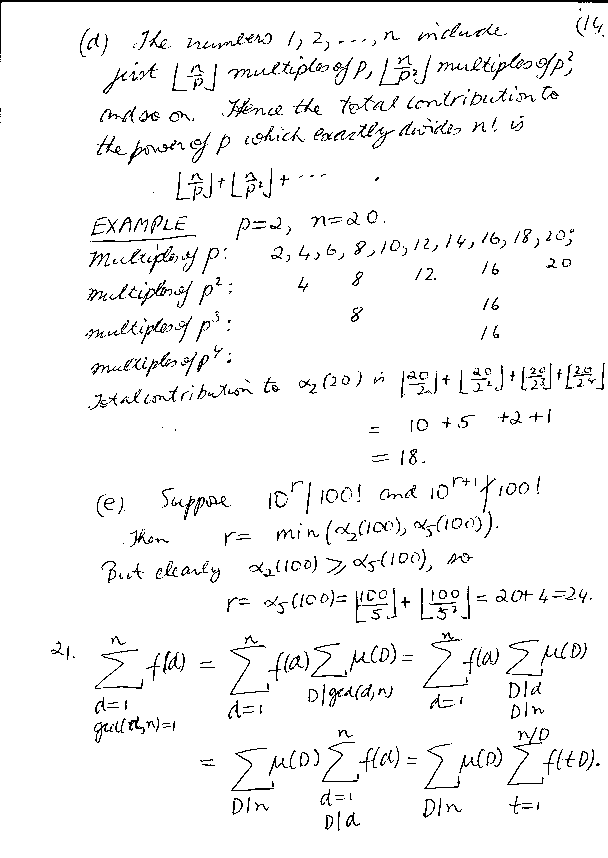 (14.
(d) The numbers 1, 2, ..., n include
just ⌊n/p⌋ multiples of p, ⌊n/p²⌋ multiples of p²,
and so on. Hence the total contribution to
the power of p which exactly divides n! is
⌊n/p⌋ + ⌊n/p²⌋ + ··· .
EXAMPLE p=2, n=20.
Multiples of p: 2, 4, 6, 8, 10, 12, 14, 16, 18, 20;
multiples of p²: 4 8 12. 16 20
multiples of p³: 8 16
multiples of p⁴: 16
Total contribution to α₂(20) is ⌊20/2⌋ + ⌊20/2²⌋ + ⌊20/2³⌋ + ⌊20/2⁴⌋
= 10 + 5 + 2 + 1
= 18.
(e) Suppose 10^r | 100! and 10^(r+1) ∤ 100!
Then r = min(α₂(100), α₅(100)).
But clearly α₂(100) ⩾ α₅(100), so
r = α₅(100) = ⌊100/5⌋ + ⌊100/5²⌋ = 20 + 4 = 24.
21. ∑_{d=1, gcd(d,n)=1}^{n} f(d) = ∑_{d=1}^{n} f(d) ∑_{D|gcd(d,n)} μ(D) = ∑_{d=1}^{n} f(d) ∑_{D|d, D|n} μ(D)
= ∑_{D|n} μ(D) ∑_{d=1, D|d}^{n} f(d) = ∑_{D|n} μ(D) ∑_{t=1}^{n/D} f(tD).